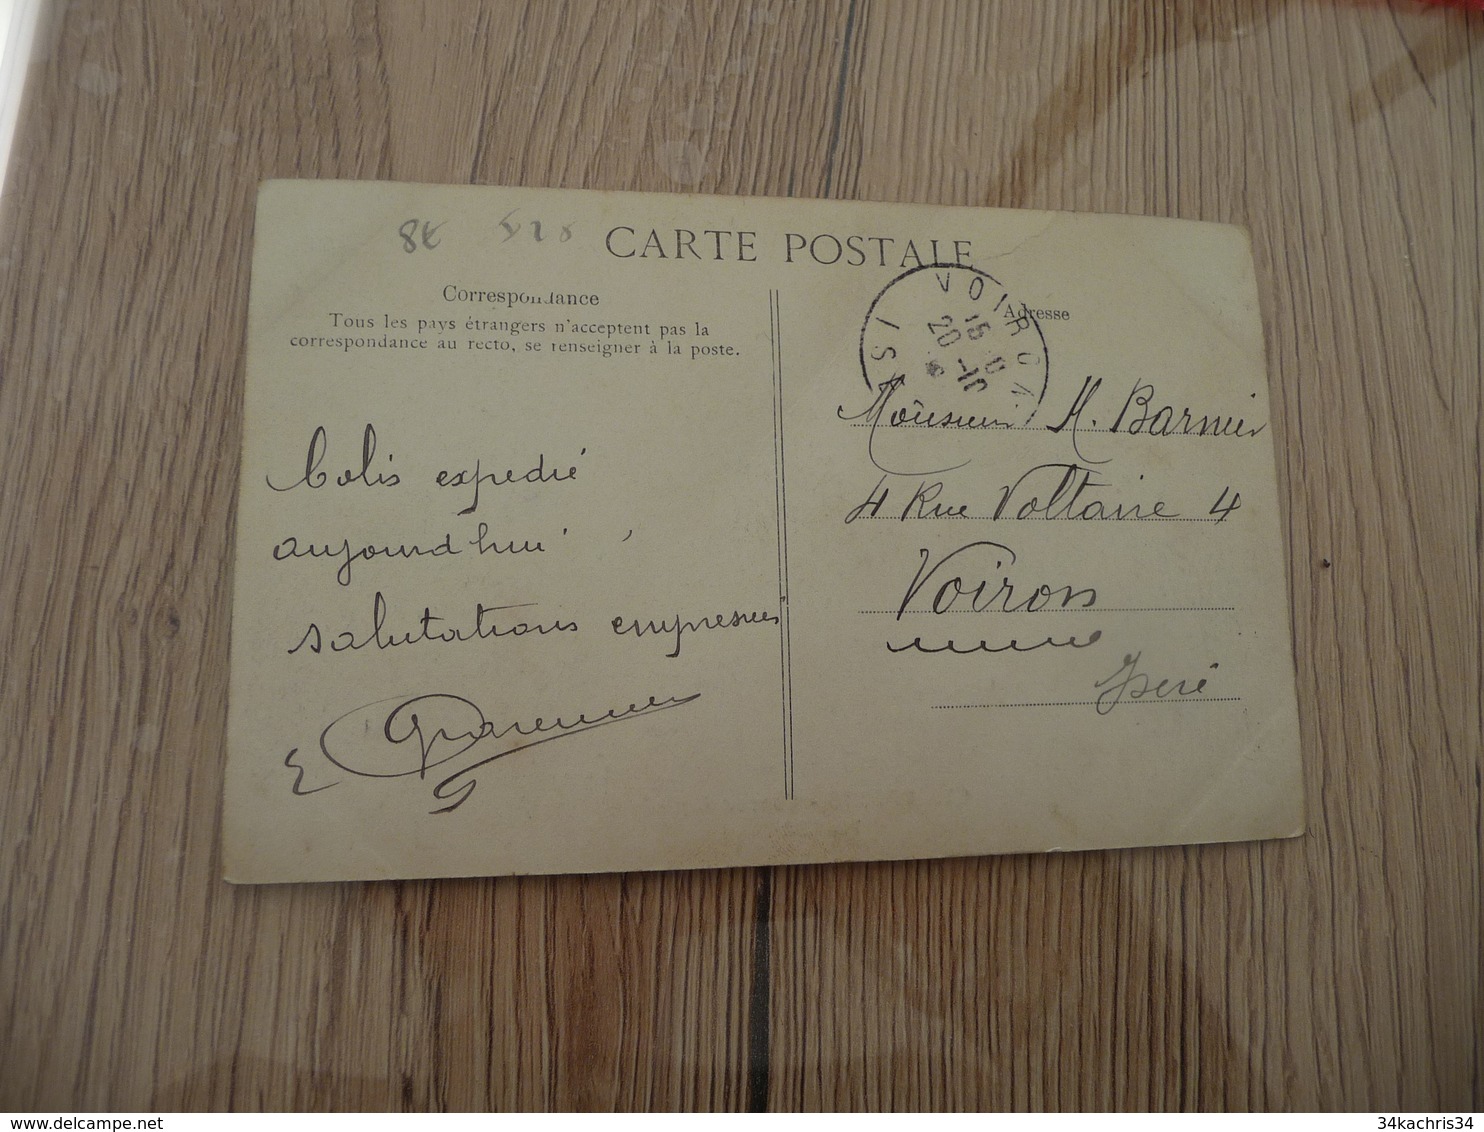 8€
CARTE POSTALE
Correspondance
Tous les pays étrangers n'acceptent pas la
correspondance au recto, se renseigner à la poste.
Colis expedié
aujourd'hui
salutations empressées
E
Adresse
VOIRON
ISÈ
20
Monsieur M. Barnier
4 Rue Voltaire 4
Voiron
Isère
34kachris34